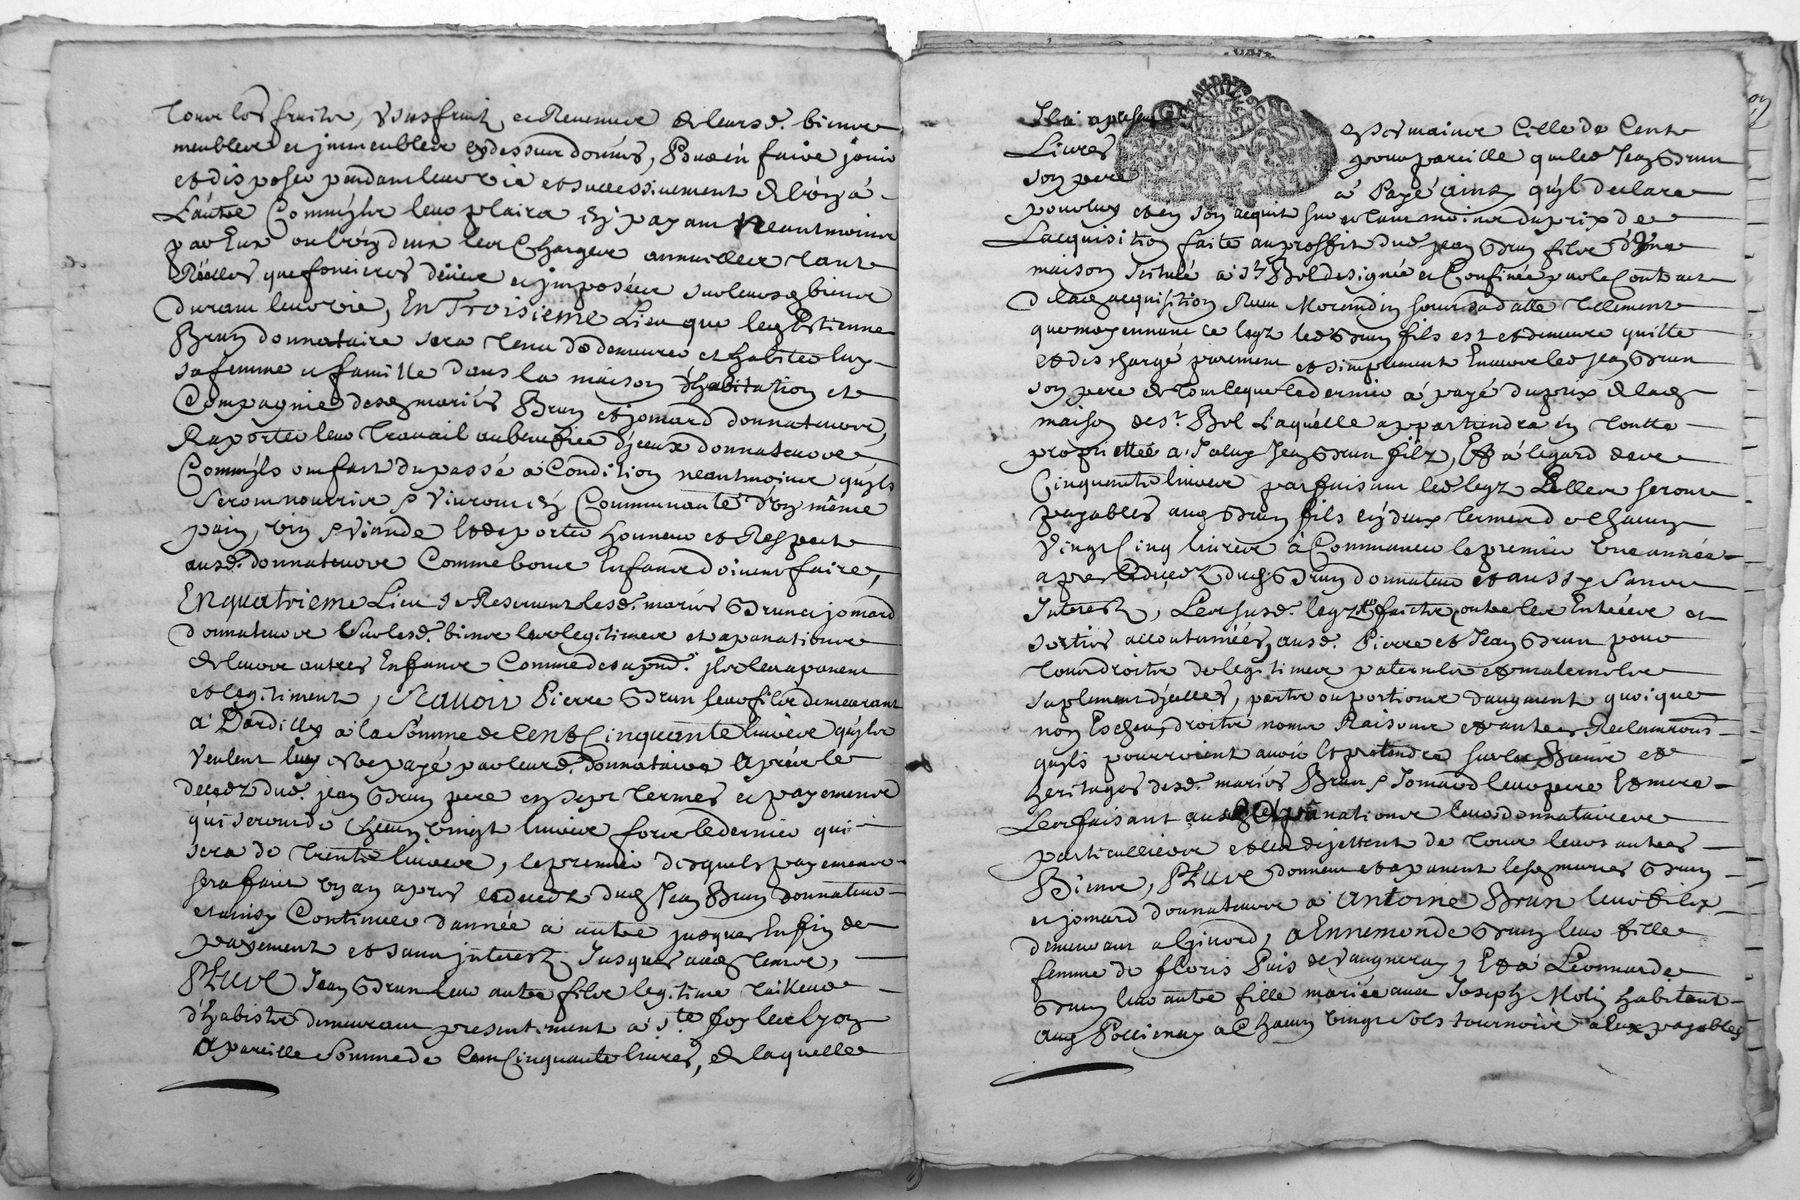 tous les fruits, usufruit et Revenus de leursd. biens
meubles et jmmeubles cydessus donnés, Pour en faire jouir
et disposer pendant leur vie et successivement de l'un à
L'autre Comm'jls leur plaira En payant Neantmoins
par Eux ou l'un d'eux les Charges annuelles tant
Réelles que foncieres deües et jmposées sur leursd. biens
durant leur vie, En Troisieme Lieu que led. Estienne
Brun donnataire sera tenu de demeurer et habiter luy
sa femme et famille dans la maison d'habitation et
Compagnie desd. mariés Brun et jomard donnateurs,
Raporter leur travail au benefice d'jceux donnateurs
Comm'jls ont fait du passé à Condition neantmoins qu'jls
seront nourris & vivront En Communauté d'un même
pain, vin & viande Et de porter honneur et Respect
ausd. donnateurs Comme bons Enfants doivent faire,
En quatrieme Lieu se Reservent lesd. mariés Brun et jomard
donnateurs sur lesd. biens les legitimes et apanations
de leurs autres Enfants Comme des apnt. jls les apanent
et legitiment, Scavoir Pierre Brun leur fils demeurant
à Dardilly à la Somme de Cent Cinquante livres qu'jls
veulent luy estre payé par leurd. donnataire Apres le
decedz dud. jean Brun pere en sept termes et payements
qui seront de Chacun vingt livres fors le dernier qui
sera de trente livres, le premier desquels payements
sera fait un an apres le decedz dud. Jean Brun donnateur
et ainsy Continuer d'année à autre jusques Enfin de
payement et sans jnterest Jusques ausd. termes,
Plus Jean Brun leur autre fils legitime tailleur
d'habits demeurant presentement à Ste. foy les lyon
A pareille Somme de Cent Cinquante livres, de laquelle
Il a
es Ses mains Celle de Cent
Livres pour pareille que led. Jean Brun
son pere à Payé ainsy qu'jl declare
pour luy et en son acquit sur et tant moins du prix de
L'acquisition faite au proffit dud. jean Brun fils d'une
maison Scituée à St. Bel designée et Confinée par le Contract
de lad. acquisition Receu Morandin sous sa datte tellement
que moyennant ce legz led. Brun fils est et demeure quitte
et deschargé purement et simplement Envers led. Jean Brun
son pere de tout ce que ce dernier à payé du prix de lad.
maison de St. Bel Laquelle appartiendra En toutte
proprieté a jceluy Jean Brun fils, Et à l'egard des
Cinquante livres parfaisant led. legz Elles seront
payables aud. Brun fils en deux termes de Chacun
Vingt Cinq livres à Commancer le premier une année
apres le decedz dud. Brun donnateur et aussy sans
Interest, Les susd. legz faits outre les Entrées et
sorties accoutumées ausd. Pierre et Jean Brun pour
tous droits de legitimes paternels et maternels
suplement d'jcelles, parts ou portions d'augment quoique
non Escheu, droits noms Raisons et autres Reclamations
qu'jls pourroient avoir Et pretendre sur les Biens et
heritages desd. mariés Brun & Jomard leurs pere Et mere
Les faisant quand à ce leurs donnataires
particulliers et les dejettent de tous leurs autres
Biens, Plus donnent et apanent lesd. mariés Brun
et jomard donnateurs à Antoine Brun leur fils
demeurant a Givord, à Ennemonde Brun leur fille
femme de floris Pais de Vaugneray, Et à Leonnarde
Brun leur autre fille mariée avec Joseph Molin habitant
aud. Pollienay à Chacun vingt sols tournois à eux payables